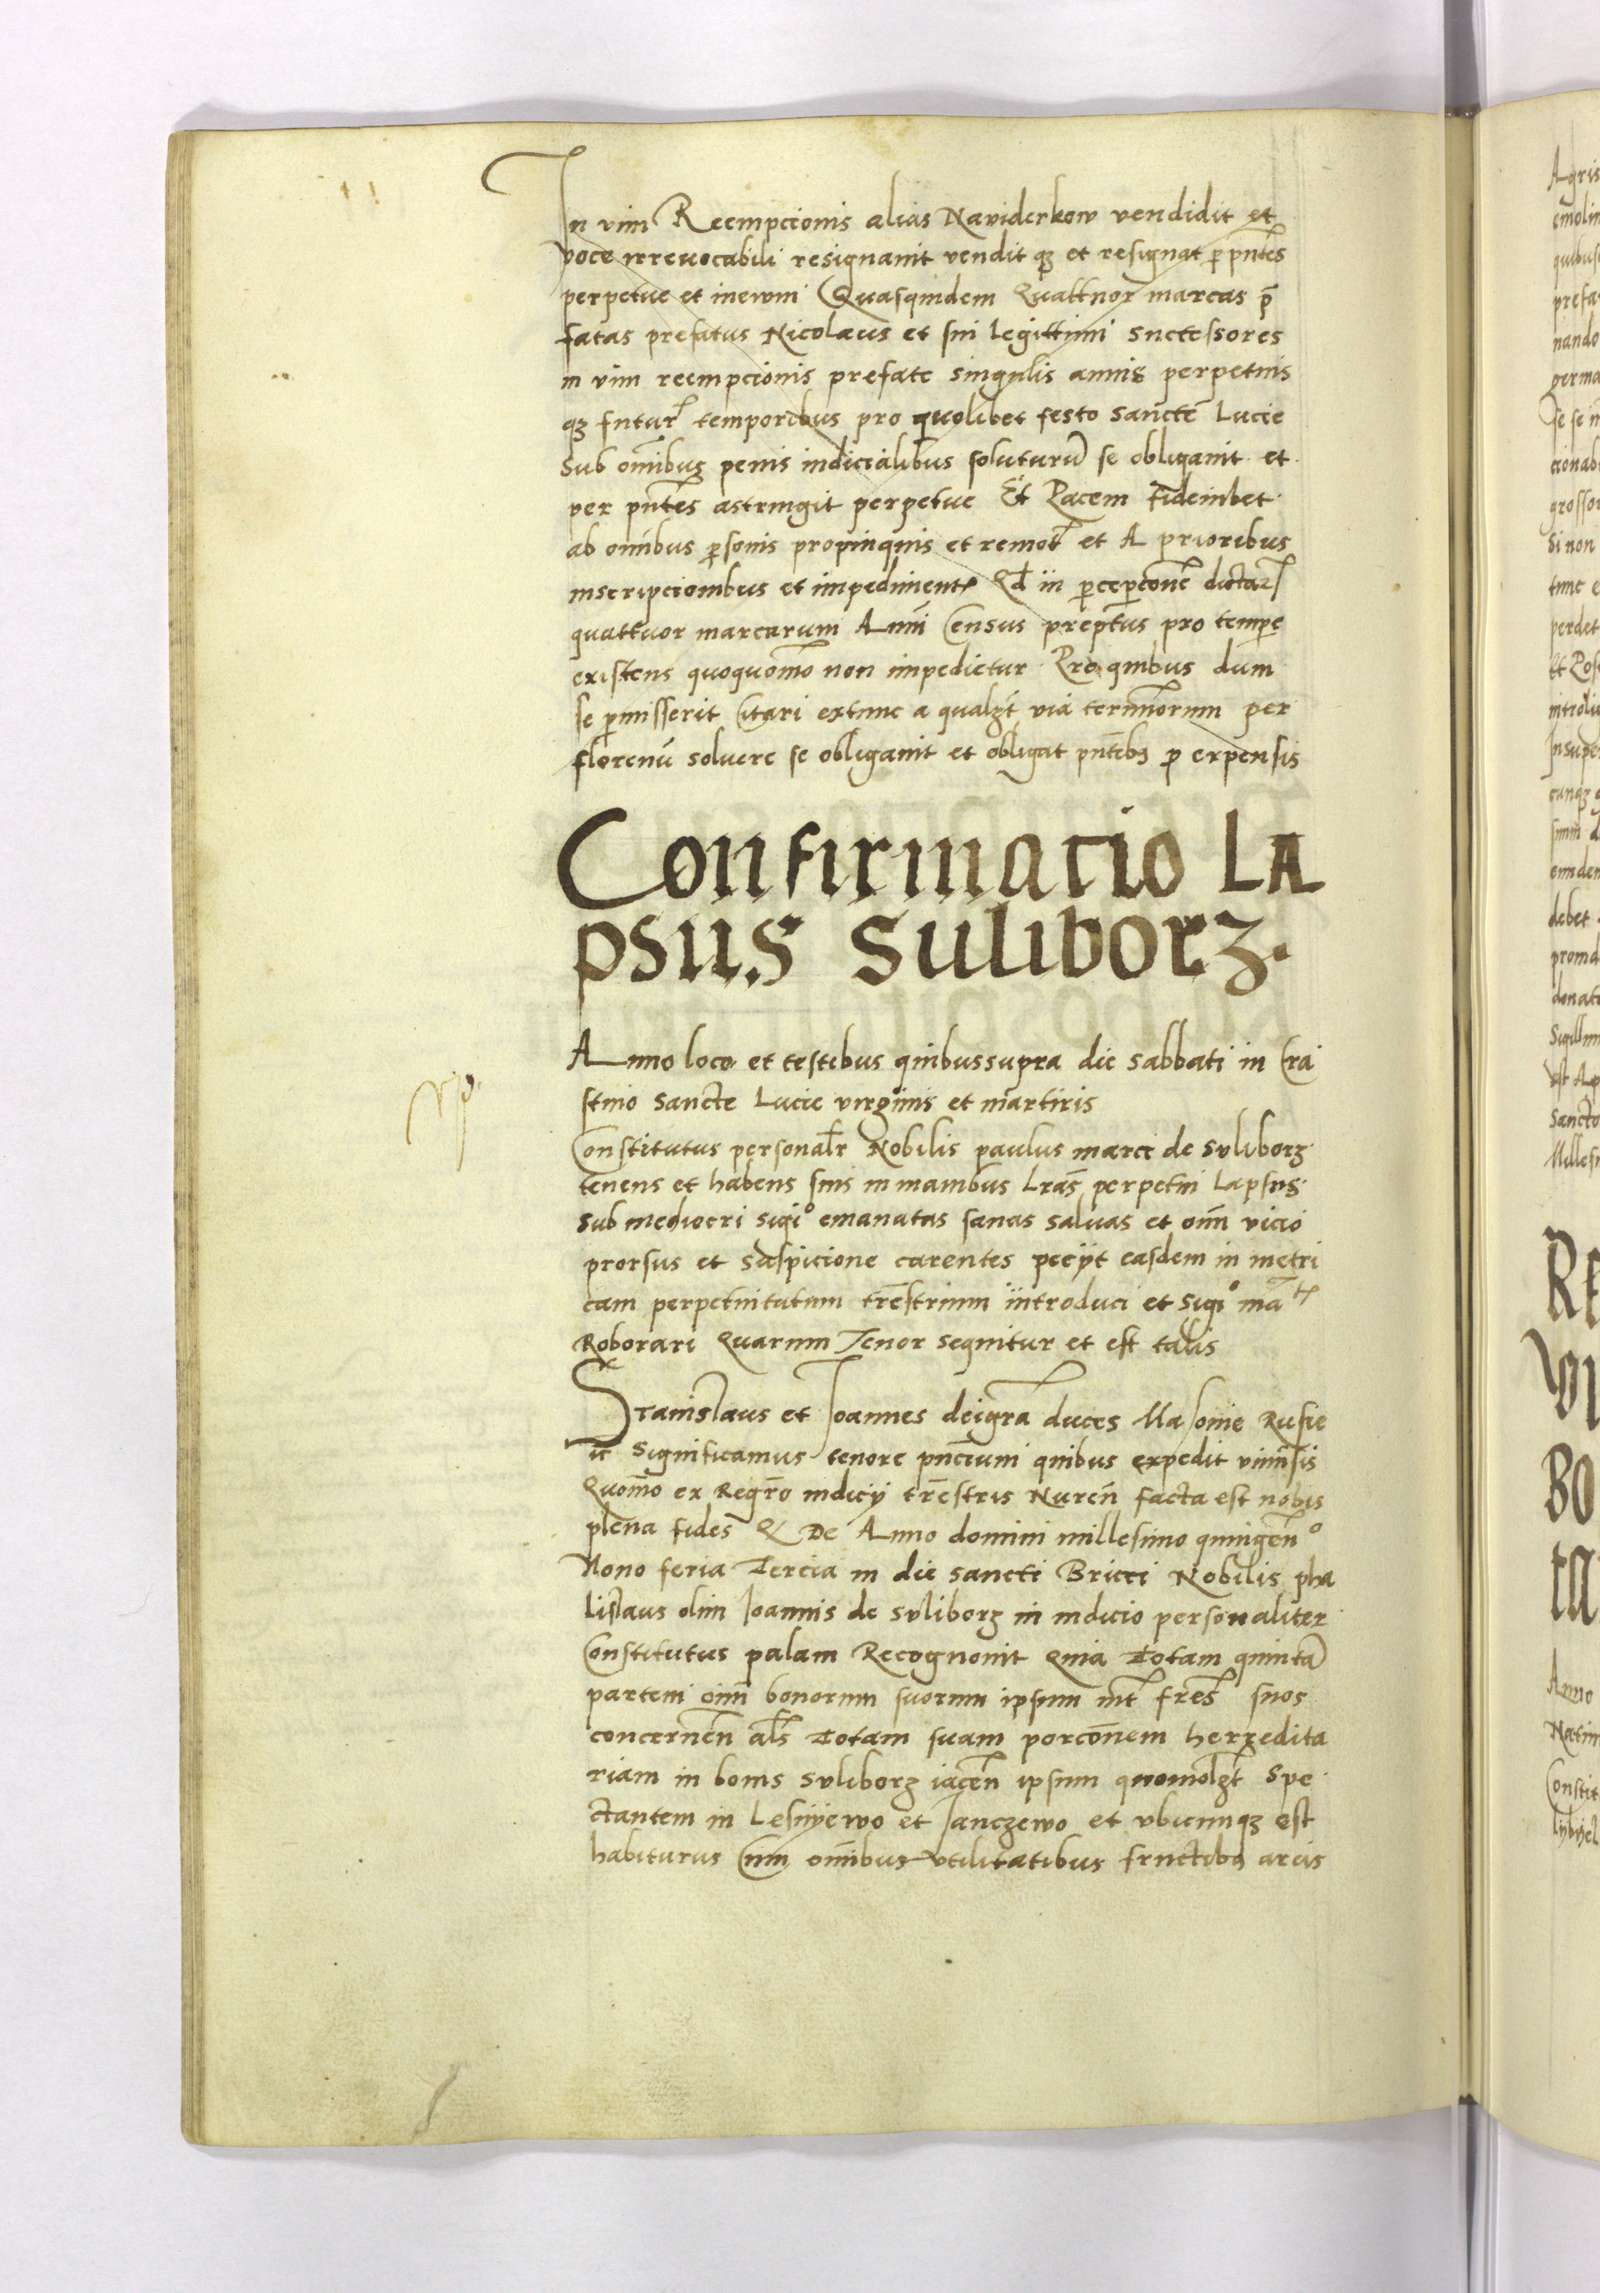 In vim Reempcionis alias Naviderkow vendidit et
voce irrevocabili resignavit vendit qz et resignat p pntes
perpetue et inewm Quasquidem Quattuor marcas p̄
fatas prefatus Nicolaus et sui legittimi Successores
in vim reempcionis prefate singulis annis perpetuis
qz futur temporibus pro quolibet festo Sancte Lucie
Sub omibus penis iudicialibus soluturū se obligavit et
per pntes astringit perpetue Et Pacem fideiubet
ab omibus psonis propinquis et remot et A prioribus
inscripcionibus et impediment Qd in pcepcone dictar
quattuor marcarum Anni Census preptus pro tempe
existens quoquomo non impedietur Pro quibus dum
se pmisserit Citari extunc a qualzt via terminorum per
florenū solvere se obligavit et obligat pntibs p expensis
Confirmacio La
psus Suliborz.
Anno loco et testibus quibussupra die Sabbati in Cra
stino Sancte Lucie virginis et martiris
Constitutus personalr Nobilis paulus marci de Suliborz
tenens et habens suis in manibus Lras perpetui Lapsus
Sub mediocri sigio emanatas sanas salvas et omi vicio
prorsus et suspicione carentes peciit easdem in metri
cam perpetuitatum trestrium introduci et sigio
Roborari Quarum Tenor sequitur et est talis
Stanislaus et Joannes deigra duces Masovie Rusie
ic Significamus tenore pncium quibus expedit univsis
Quomo ex Regro iudicii trestris Nuren facta est nobis
plena fides Q De Anno domini millesimo quingeno
Nono feria Tercia in die sancti Bricci Nobilis pha
lislaus olim Joannis de Suliborz in iudicio personaliter
Constitutus palam Recognovit Quia Totam quinta
partem oim bonorum suorum ipsum int fres suos
concernen als Totam suam porconemherredita
riam in bonis Suliborz iacen ipsum quomolzt Spe
ctantem in Lesnyewo et Janczewo et ubicunqz est
habiturus Cum omibus utilitatibus fructibs areis